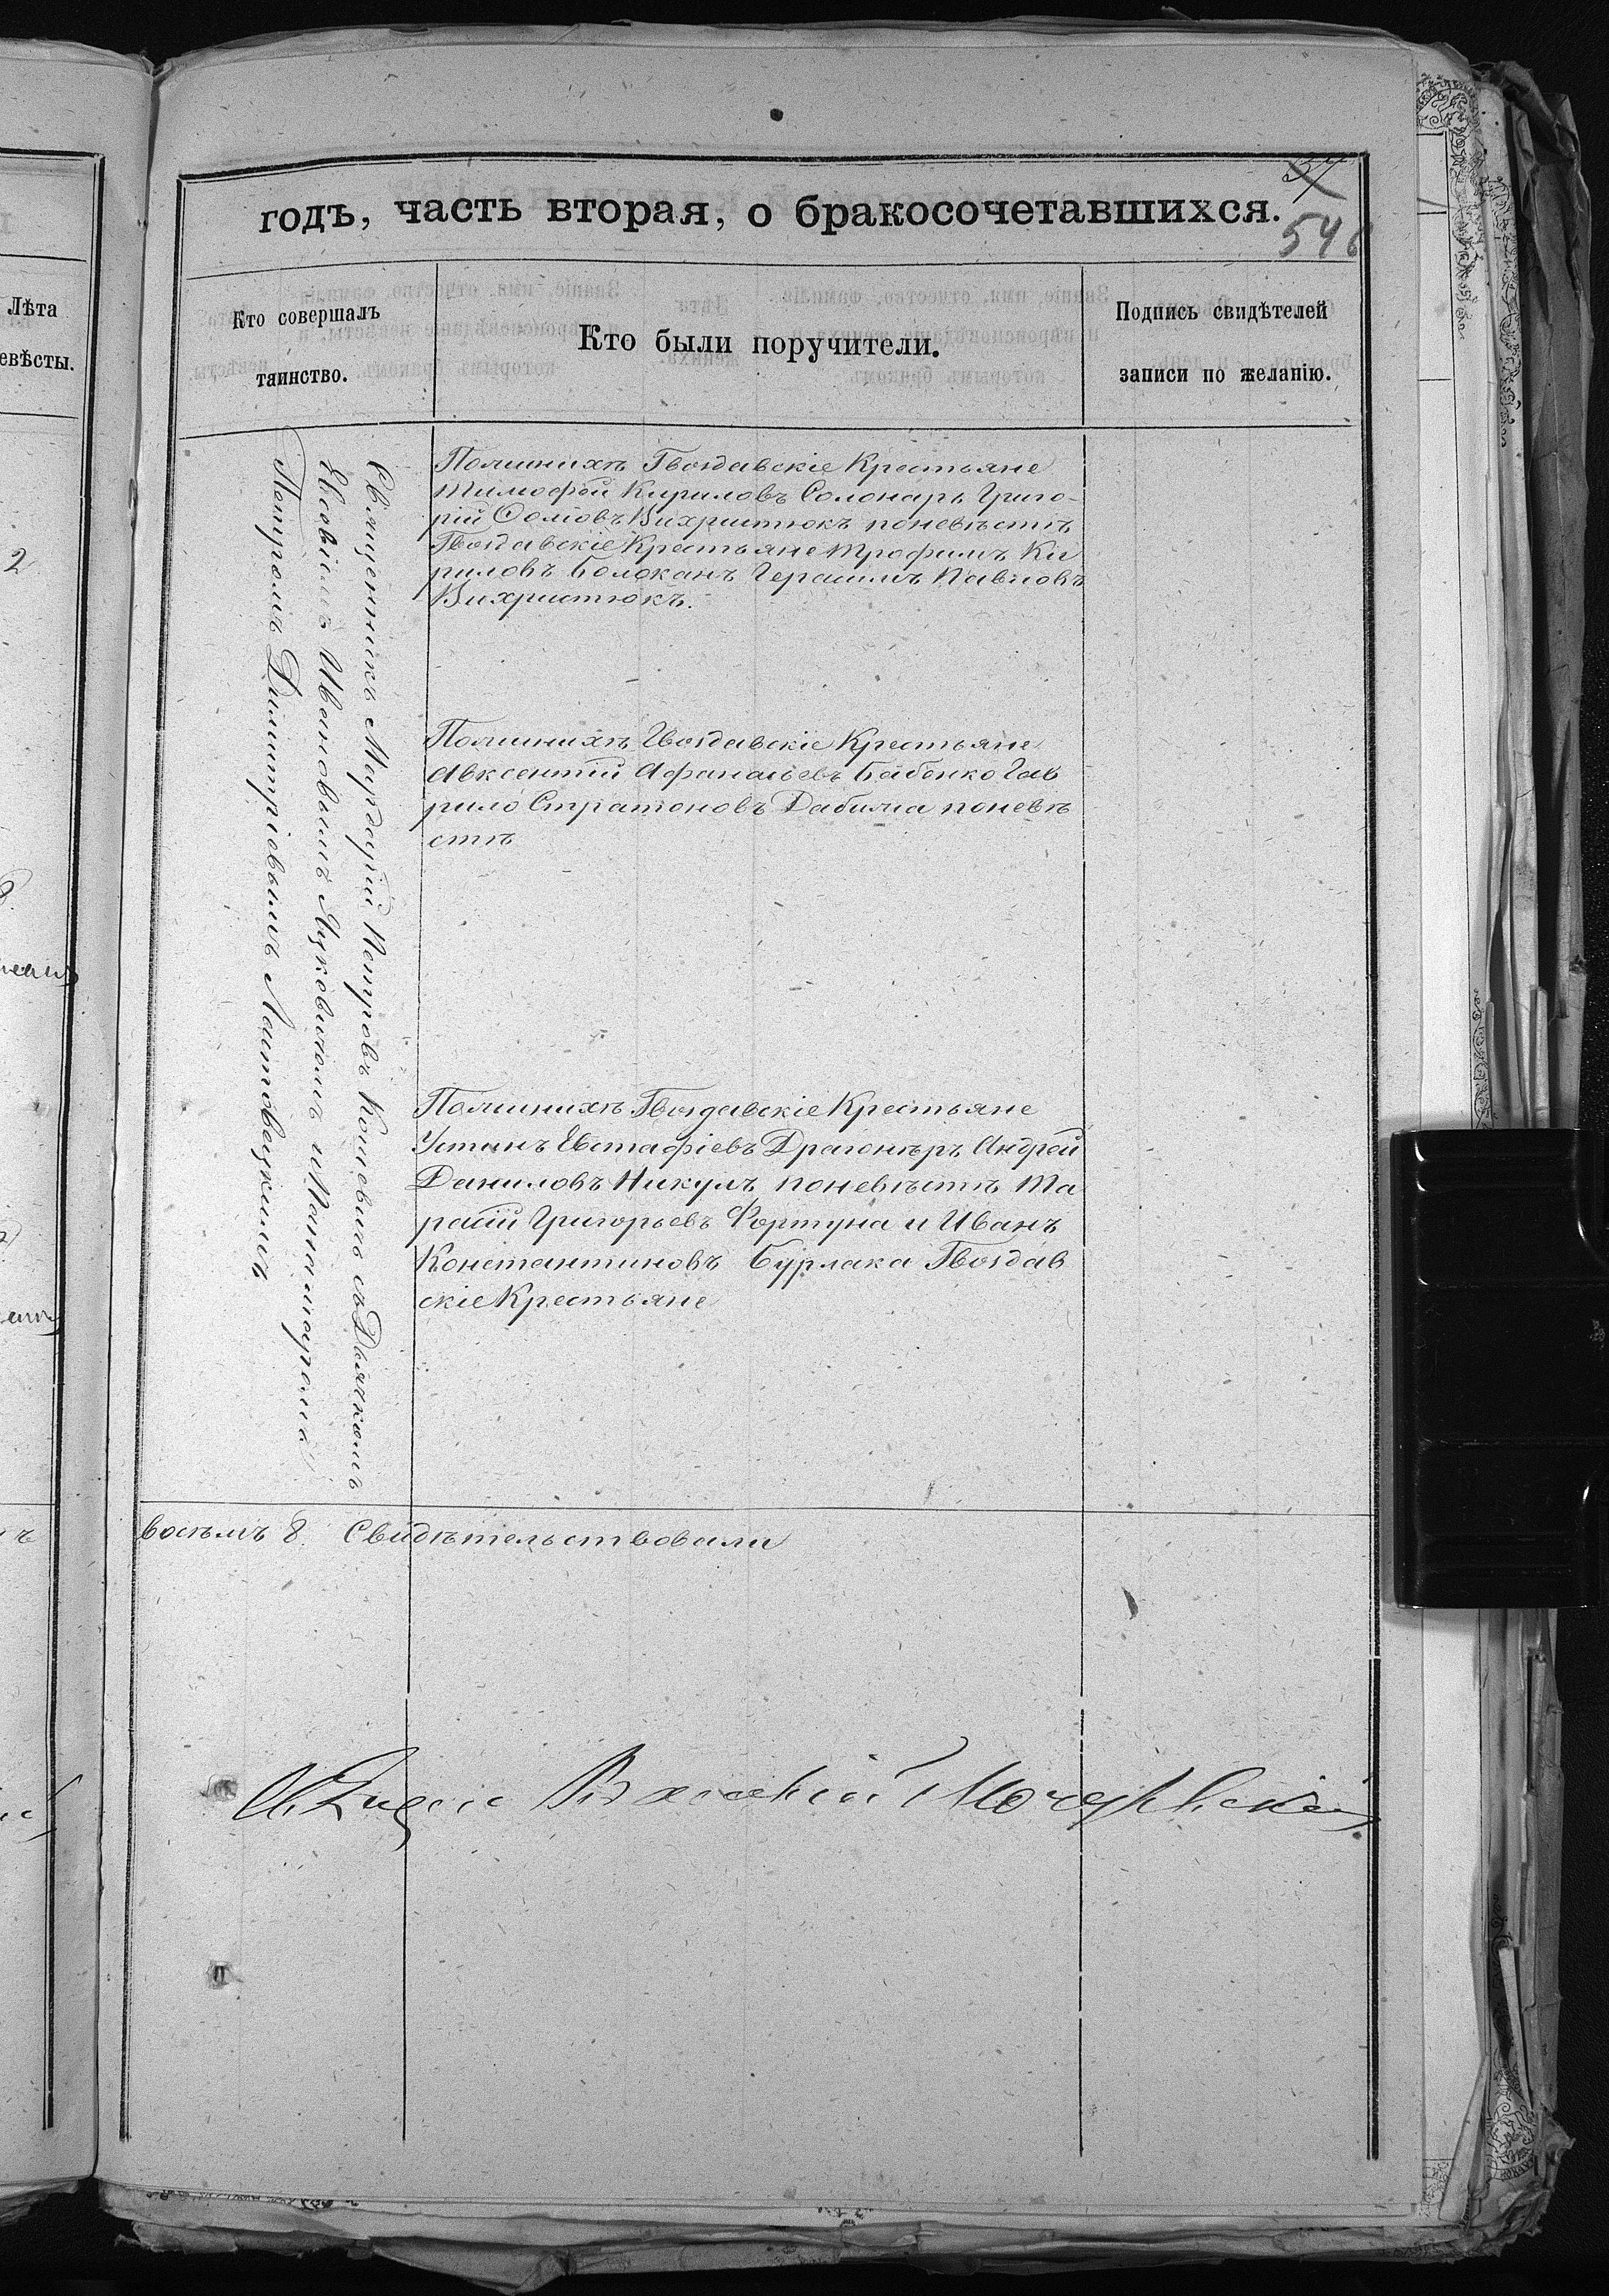 37
годъ, часть вторая, о бракосочетавшихся.
546
Лѣта
евѣсты.
Кто совершалъ
таинство.
Кто были поручители.
Подпись свидѣтелей
записи по желанію.
2
Священникъ Мардарій Петровъ Кошевичъ съ Дьячкомъ
Евсевіемъ Ивановымъ Яцковымъ и Панамаромъ
Петромъ Димитріовымъ Ластовецкимъ
Поженихѣ Гвоздавскіе Крестьяне
Тимофей Кириловъ Солонаръ Григо-
рій Фомовъ Вихристюкъ поневѣстѣ
Гвоздавскіе Крестьяне Трофимъ Ки
риловъ Болоканъ Герасимъ Павловъ
Вихристюкъ.
Поженихѣ Гвоздавскіе Крестьяне
Авксентій Афанасьевъ Бабенко Гав
рило Стратоновъ Дабижа поневѣ
стѣ
Поженихѣ Гвоздавскіе Крестьяне
Устинъ Евстафіевъ Драгонѣръ Андрей
Даниловъ Никулъ поневѣстѣ Та
расій Григорьевъ Фортуна и Иванъ
Константиновъ Бурлака Гвоздав
скіе Крестьяне
восѣмъ 8. Свидѣтельствовали